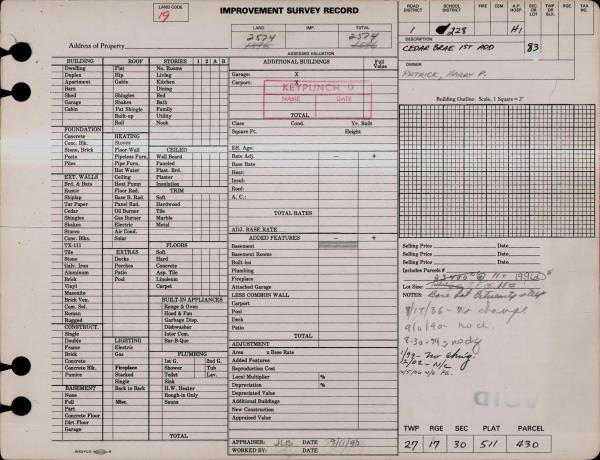 LAND CODE
19
IMPROVEMENT SURVEY RECORD
LAND IMP. TOTAL
2574 2574
Address of Property
ASSESSED VALUATION
ROAD DISTRICT SCHOOL DISTRICT FIRE CEM A.P. HOSP. SEC OR LOT TWP OR BLK RGE TAX NUMBER
1 228 H1
DESCRIPTION
CEDAR BRAE 1ST ADD 83
PATRICK, HARRY P.
Building Outline Scale, 1 Square = 2'
BUILDING ROOF STORIES 1 2 A B
Dwelling Flat No. Rooms
Duplex Hip Living
Apartment Gable Kitchen
Barn Dining
Shed Shingles Bed
Garage Shakes Bath
Cabin Pat Shingle Family
Built-up Utility
Roll Nook
FOUNDATION
Concrete HEATING
Conc. Blk. Stoves CEILED
Stone, Brick Floor-Wall Wall Board
Posts Pipeless Furn. Paneled
Piles Pipe Furn. Plast. Brd.
Hot Water Plaster
EXT. WALLS Ceiling Insulation
Brd. & Bats Heat Pump
Rustic Floor Rad. TRIM
Shiplap Base B. Rad. Soft
Tar Paper Panel Rad. Hardwood
Cedar Oil Burner Tile
Shingles Gas Burner Marble
Shakes Electric Metal
Stucco Air Cond.
Conc. Blks. Solar
TX-111 FLOORS
Tile EXTRAS Soft
Stone Decks Hard
Galv. Iron Porches Concrete
Aluminum Patio Asp. Tile
Brick Pool Linoleum
Vinyl Carpet
Masonite
Brick Ven. BUILT-IN APPLIANCES
Com. Sel. Range & Oven
Roman Hood & Fan
Rugged Garbage Disp.
CONSTRUCT. Dishwasher
Single Inter Com.
Double LIGHTING Bar-B-Que
Frame Electric
Brick Gas PLUMBING
Concrete 1st G. 2nd G.
Concrete Blk. Fireplace Shower Tub
Pumice Stacked Toilet Lav.
Single Sink
BASEMENT Back to Back H.W. Heater
None Rough-in Only
Full Misc. Sauna
Part
Concrete Floor
Dirt Floor
Garage TOTAL
ADDITIONAL BUILDINGS Full Value
Garage: X
Carport: X
KEYPUNCH D
NAME DATE
TOTAL
Class Cond. Yr. Built
Square Ft. Height
Eff. Age:
Rate Adj. − +
Base Rate
Heat:
Insul:
Roof:
A. C.:
TOTAL RATES
ADJ. BASE RATE
ADDED FEATURES − +
Basement
Basement Rooms
Built-ins
Plumbing
Fireplace
Attached Garage
LESS COMMON WALL
Carport
Pool
Deck
Patio
TOTAL
ADJUSTMENT
Area x Base Rate
Added Features
Reproduction Cost
Local Multiplier %
Depreciation %
Depreciated Value
Additional Buildings
New Construction
Appraised Value
APPRAISER: JLB DATE 9/11/90
WORKED BY: DATE
Selling Price Date
Selling Price Date
Selling Price Date
Includes Parcels #
Lot Size:
NOTES:
9/11/90 - no ch.
VOID
TWP RGE SEC PLAT PARCEL
27 17 30 511 430